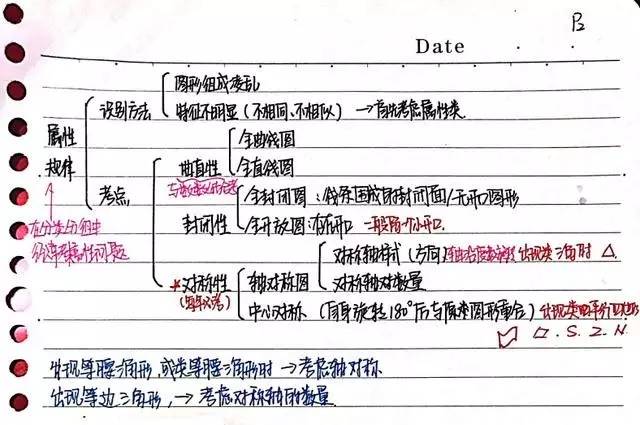 B
Date
图形组成凌乱
识别方法
特征不明显（不相同、不相似）→首先考虑属性类
属性
规律
全曲线图
曲直性
全直线图
考点
全封闭图：线条围成封闭面/无开口图形
封闭性
全开放图：有开口 一般留一个小开口
在分类分组中
经常考属性问题
对称轴样式（方向） 出现类三角时 △
*对称性
轴对称图
对称轴对数量
中心对称（自身旋转180°后与原来图形重合）出现类平行四边形
▱.S.Z.N.
出现等腰三角形，或类等腰三角形时→考虑轴对称
出现等边三角形，→考虑对称轴的数量